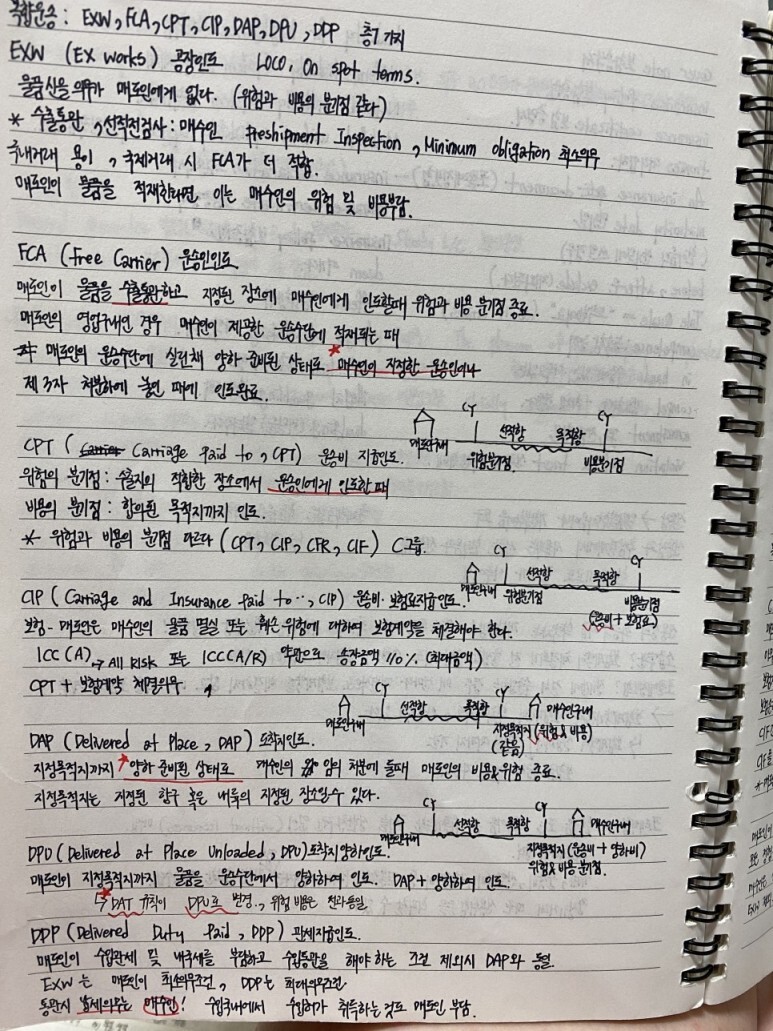 복합운송 : EXW, FCA, CPT, CIP, DAP, DPU, DDP 총7가지
EXW (EX works) 공장인도 LOCO, On spot terms.
물품신을의무가 매도인에게 없다. (위험과 비용의 분기점 같다)
* 수출통관, 선적전검사 : 매수인 Preshipment Inspection, Minimum obligation 최소의무
국내거래 용이, 국제거래 시 FCA가 더 적합.
매도인이 물품을 적재한다면, 이는 매수인의 위험 및 비용부담.
FCA (Free Carrier) 운송인인도
매도인이 물품을 수출통관하고 지정된 장소에 매수인에게 인도할때 위험과 비용 분기점 종료.
매도인의 영업구내인 경우 매수인이 제공한 운송수단에 적재되는 때
매도인의 운송수단에 실린채 양하 준비된 상태로 *매수인이 지정한 운송인이나
제 3자 처분하에 놓인 때에 인도완료.
매도구내 CY 위험분기점 선적항 목적항 CY 비용분기점
CPT (Carriage Paid to, CPT) 운송비 지급인도.
위험의 분기점 : 수출지의 적합한 장소에서 운송인에게 인도한 때
비용의 분기점 : 합의된 목적지까지 인도.
* 위험과 비용의 분기점 다르다 (CPT, CIP, CFR, CIF) C그룹.
매도구내 CY 위험분기점 선적항 목적항 CY 비용분기점 (운송비+보험료)
CIP (Carriage and Insurance Paid to.., CIP) 운송비·보험료지급인도.
보험 - 매도인은 매수인의 물품 멸실 또는 훼손위험에 대하여 보험계약을 체결해야 한다.
ICC (A) → All Risk 또는 ICC(A/R) 약관으로 송장금액 110% (최대금액)
CPT + 보험계약 체결의무,
매도인구내 CY 선적항 목적항 CY 매수인구내 지정목적지 (위험&비용) (같음)
DAP (Delivered at Place, DAP) 도착지인도.
지정목적지까지 *양하 준비된 상태로 매수인의 임의 처분에 둘때 매도인의 비용&위험 종료.
지정목적지는 지정된 항구 혹은 내륙의 지정된 장소일수 있다.
매도인구내 CY 선적항 목적항 CY 매수인구내 지정목적지 (운송비+양하비) 위험&비용 분기점.
DPU (Delivered at Place Unloaded, DPU) 도착지양하인도.
매도인이 지정목적지까지 물품을 운송수단에서 양하하여 인도. DAP + 양하하여 인도.
*DAT 규칙이 DPU로 변경., 위험 비용은 전과동일
DDP (Delivered Duty Paid, DDP) 관세지급인도.
매도인이 수입관세 및 내국세를 부담하고 수입통관을 해야 하는 조건 제외시 DAP와 동일
EXW는 매도인이 최소의무조건, DDP는 최대의무조건
통관시 납세의무는 매수인! 수입국내에서 수입허가 취득하는것도 매도인 부담.